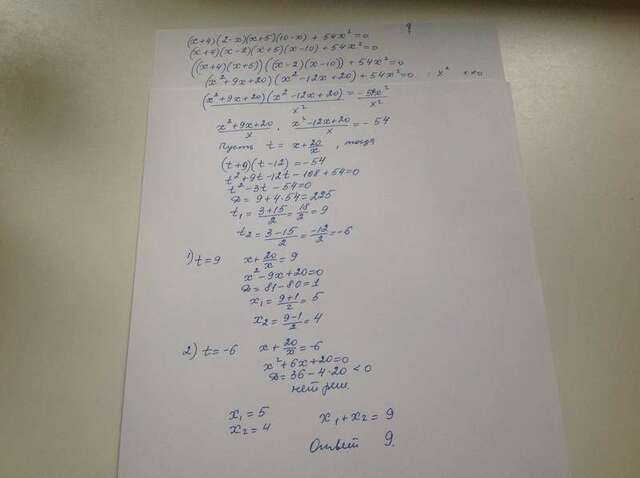 9
(x+4)(2-x)(x+5)(10-x)+54x²=0
(x+4)(x-2)(x+5)(x-10)+54x²=0
((x+4)(x+5))((x-2)(x-10))+54x²=0
(x²+9x+20)(x²-12x+20)+54x²=0 : x² x≠0
(x²+9x+20)(x²-12x+20)/x² = -54x²/x²
x²+9x+20/x · x²-12x+20/x = -54
Пусть t = x+20/x, тогда
(t+9)(t-12)=-54
t²+9t-12t-108+54=0
t²-3t-54=0
D=9+4·54=225
t₁=3+15/2=18/2=9
t₂=3-15/2=-12/2=-6
1) t=9 x+20/x=9
x²-9x+20=0
D=81-80=1
x₁=9+1/2=5
x₂=9-1/2=4
2) t=-6 x+20/x=-6
x²+6x+20=0
D=36-4·20<0
нет реш.
x₁=5 x₁+x₂=9
x₂=4
Ответ 9.